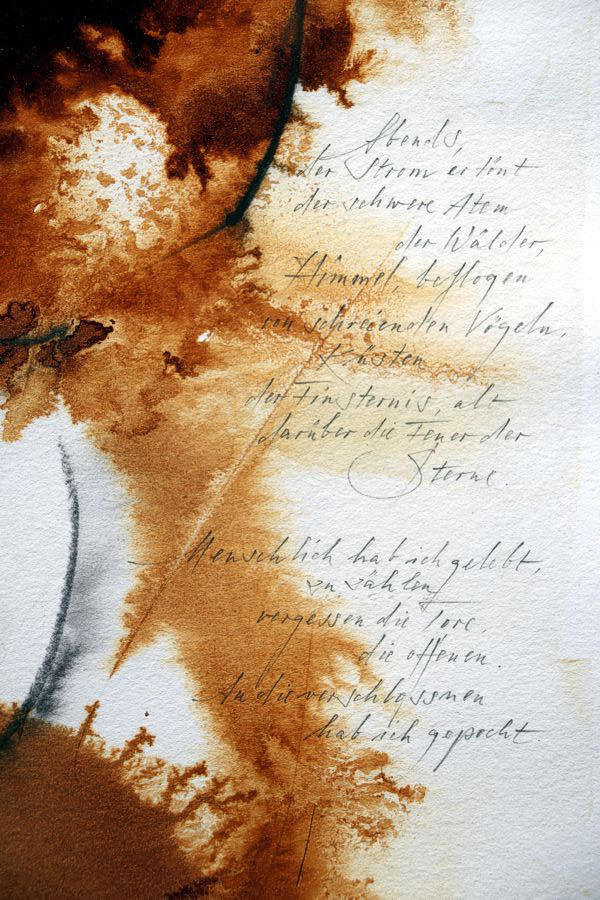 Abends,
der Strom ertönt
der schwere Atem
der Wälder,
Himmel, beflogen
von schreienden Vögeln,
Küsten
der Finsternis, alt
darüber die Feuer der
Sterne.
Menschlich hab ich gelebt,
zu zählen
vergessen die Tore,
die offenen.
An die verschlossnen
hab ich gepocht.